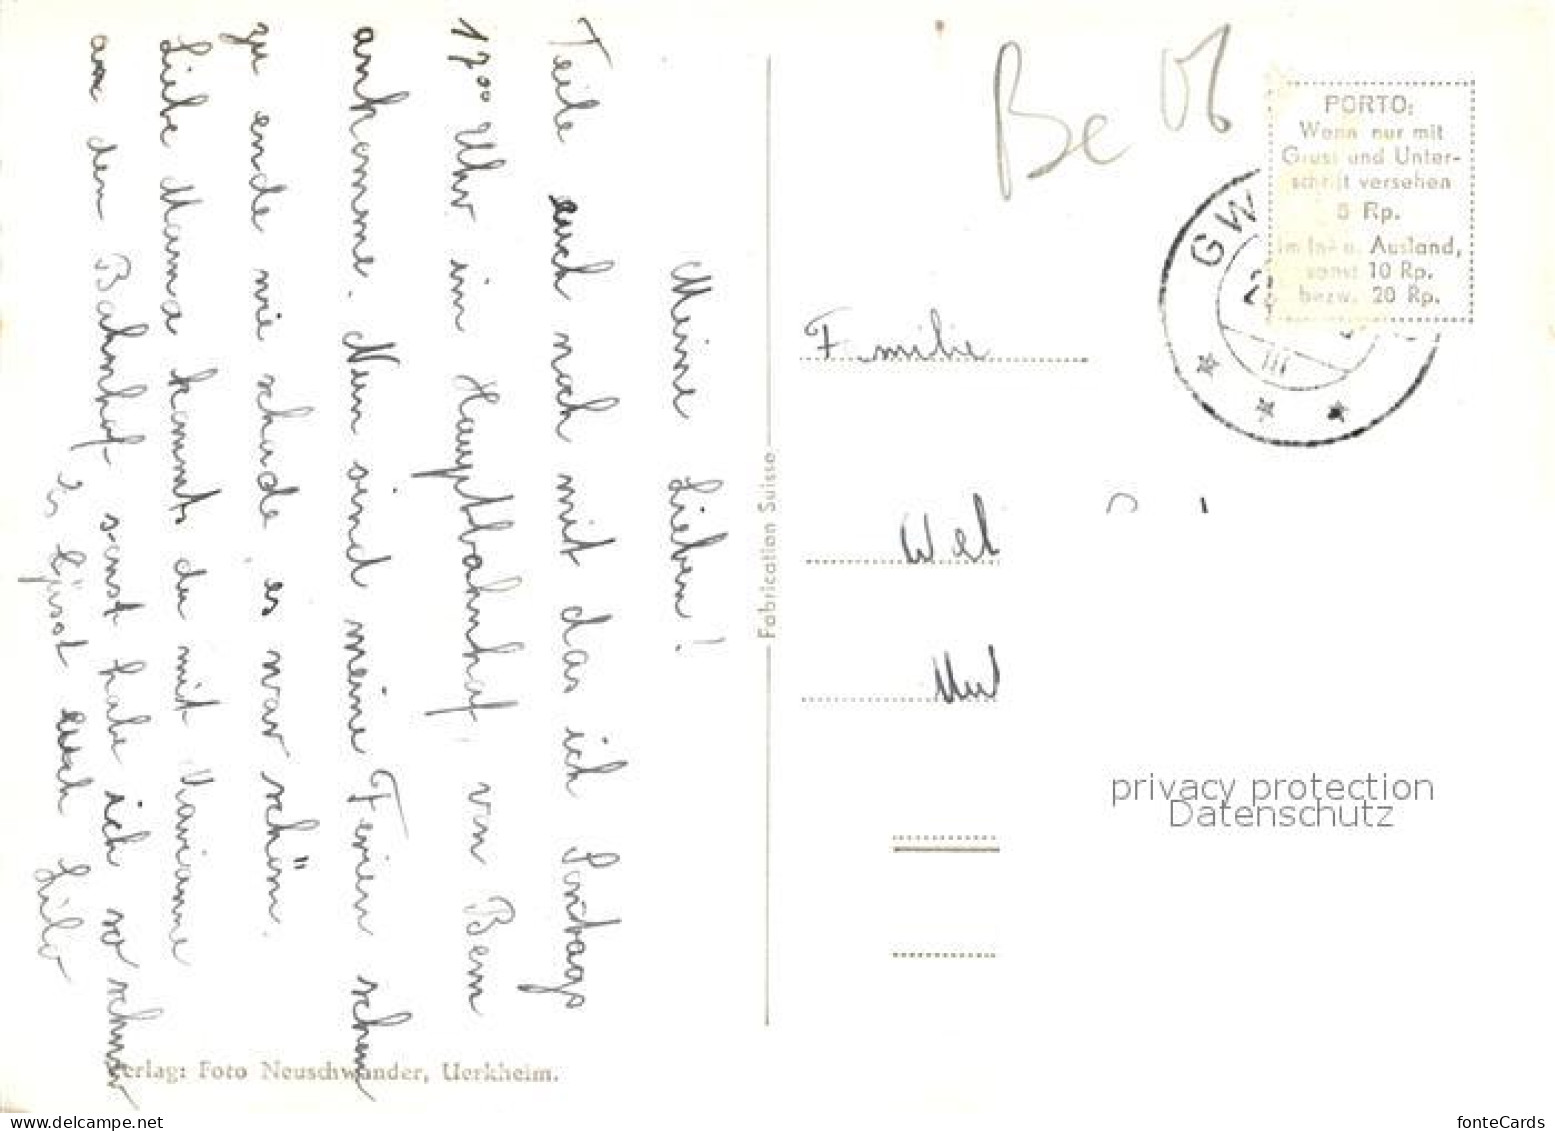 Meine Lieben!
Teile euch noch mit das ich Sontags
17⁰⁰ Uhr im Hauptbahnhof von Bern
ankomme. Nun sind meine Ferien schon
zu ende wie schade es war schön.
Liebe Mama kommts du mit Marianne
an den Bahnhof, sonst habe ich so schwer
Es Grüsst euch Lilo
Verlag: Foto Neuschwander, Uerkheim.
Fabrication Suisse
Be
PORTO:
Wenn nur mit
Gruss und Unter-
schrift versehen
5 Rp.
im In- u. Ausland,
sonst 10 Rp.
bezw. 20 Rp.
GW
III
Familie
privacy protection
Datenschutz
www.delcampe.net
fonteCards